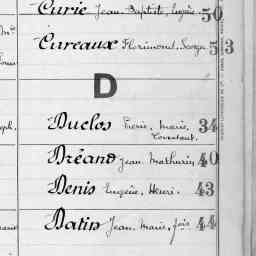 Curie Jean Baptiste, Eugène. 50
Cureaux Florimond, George 513
D
Duclos Pierre, Marie, 34
Constant.
Dréano Jean Mathurin 40
Denis Eugène, Henri. 43
Datin Jean, Marie, fois 44